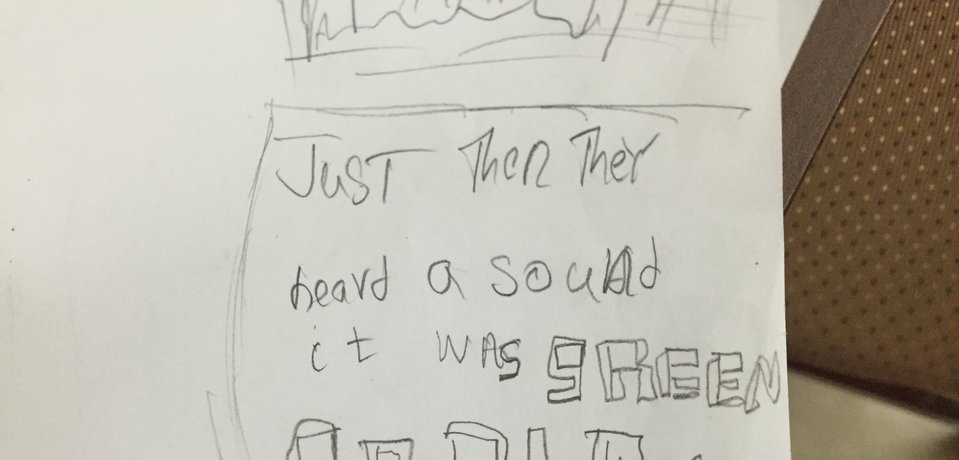 JusT Then Ther
heard a sound
it was gREEN